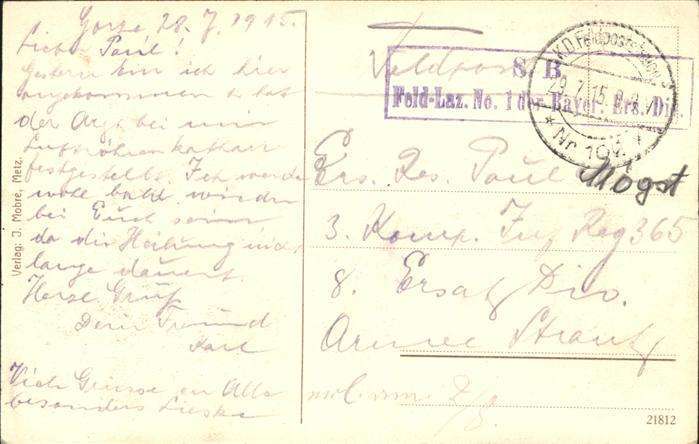 Gorze 28.7.1915.
Lieber Paul!
Gestern bin ich hier
angekommen & hat
der Arzt bei mir
Luftröhrenkatharr
festgestellt. Ich werde
wohl bald wieder
bei Euch sein
da die Heilung nicht
lange dauert.
Herzl. Gruß
Dein Freund
Karl
Viele Grüsse an Alle
besonders
Verlag: J. Mobre, Metz.
Feldpost
S. B.
Feld-Laz. No. 1 der Bayer. Ers. Div.
K.D.Feldpostexp.
29.7.15
* Nr.
Ers. Res. Paul
Mögst
3. Komp. Inf Reg 365
8. Ersatz Div.
Armee Strantz
21812